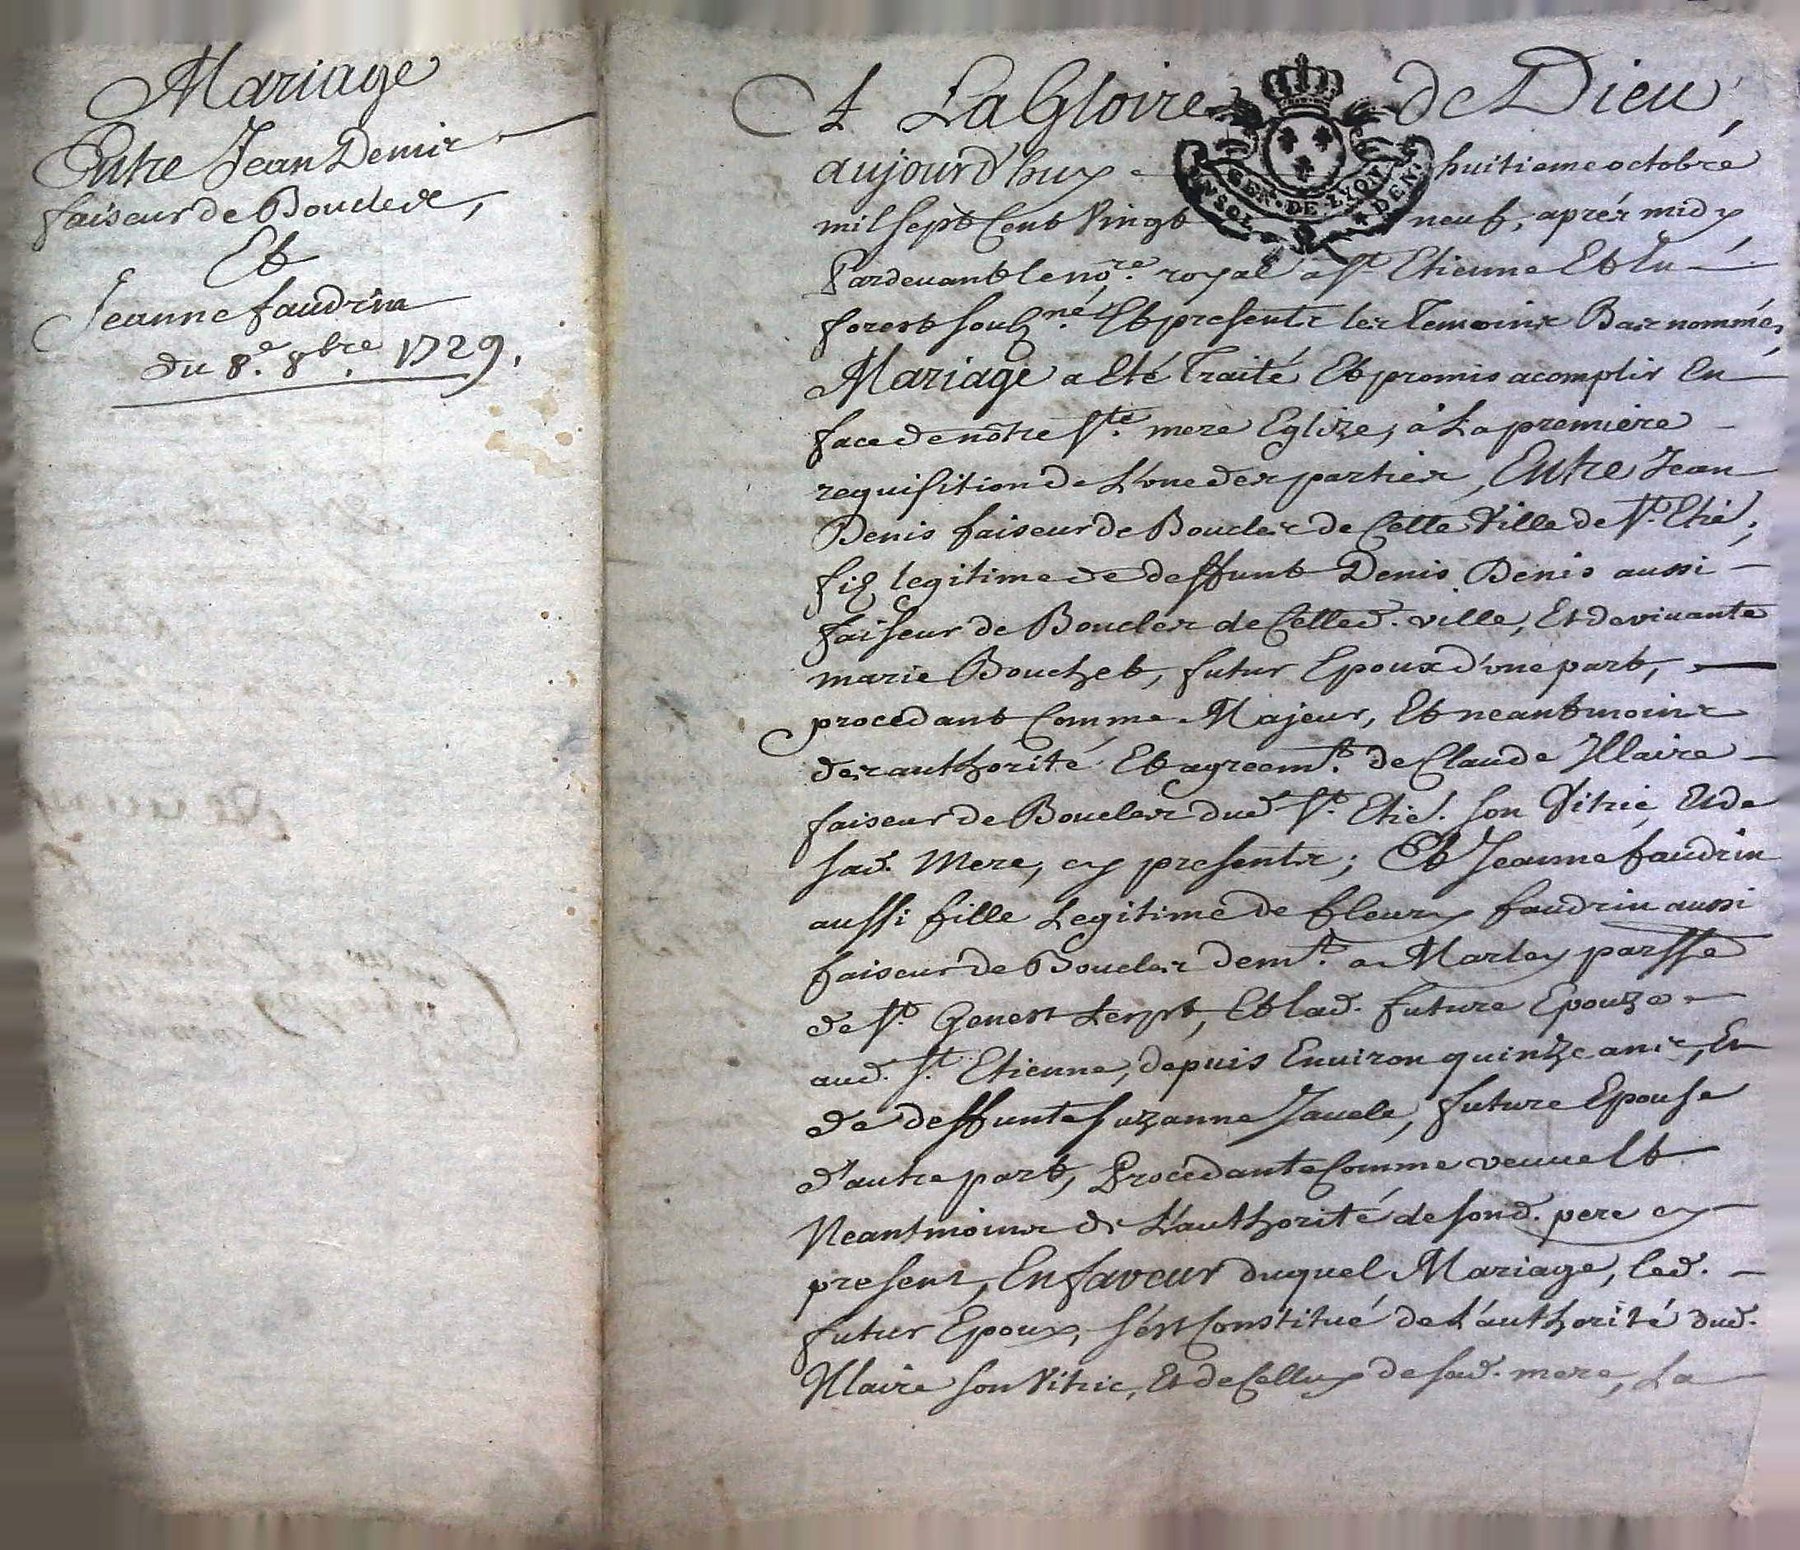 Mariage
Entre Jean Denis
faiseur de Boucles,
Et
Jeanne faudrin
du 8.e 8bre. 1729.
A La Gloire de Dieu,
GEN. DE. LYON
UN SOL DEN
aujourd'huy huitieme octobre
mil sept Cent Vingt neuf, aprés midy,
Pardevant le nore. royal a St. Etienne Et en
forest souszné, Et presents les temoins Bas nommés,
Mariage a Eté Traité Et promis acomplir En
face de nôtre Ste. mere Eglize, à La premiere
requisition de L'vne des parties, Entre Jean
Denis faiseur de Boucles de Cette Ville de St. Etie.,
filz legitime de deffunt Denis Denis aussi
faiseur de Boucles de Cetted. ville, Et de vivante
marie Bouchet, futur Epoux d'vne part,
procedant Comme Majeur, Et neantmoins
des authorité Et agreemt. de Claude Illaire
faiseur de Boucles dud. St. Etie. son Vitric, Et de
sad. Mere, cy presents; Et Jeanne faudrin
aussi fille Legitime de fleury faudrin aussi
faiseur de Boucles demt. a Marley parsse
de St. Genest Lerpt, Et lad. future Epouze
aud. St. Etienne, depuis Environ quintze ans, Et
de deffunte suzanne Javele, future Epouse
d'autre part, Procedante Comme veuve Et
Neantmoins de L'authorité de sond. pere cy
present, En faveur duquel Mariage, led.
futur Epoux, s'est Constitué de L'authorité dud.
Illaire son Vitric, Et de Celluy de sad. mere, La